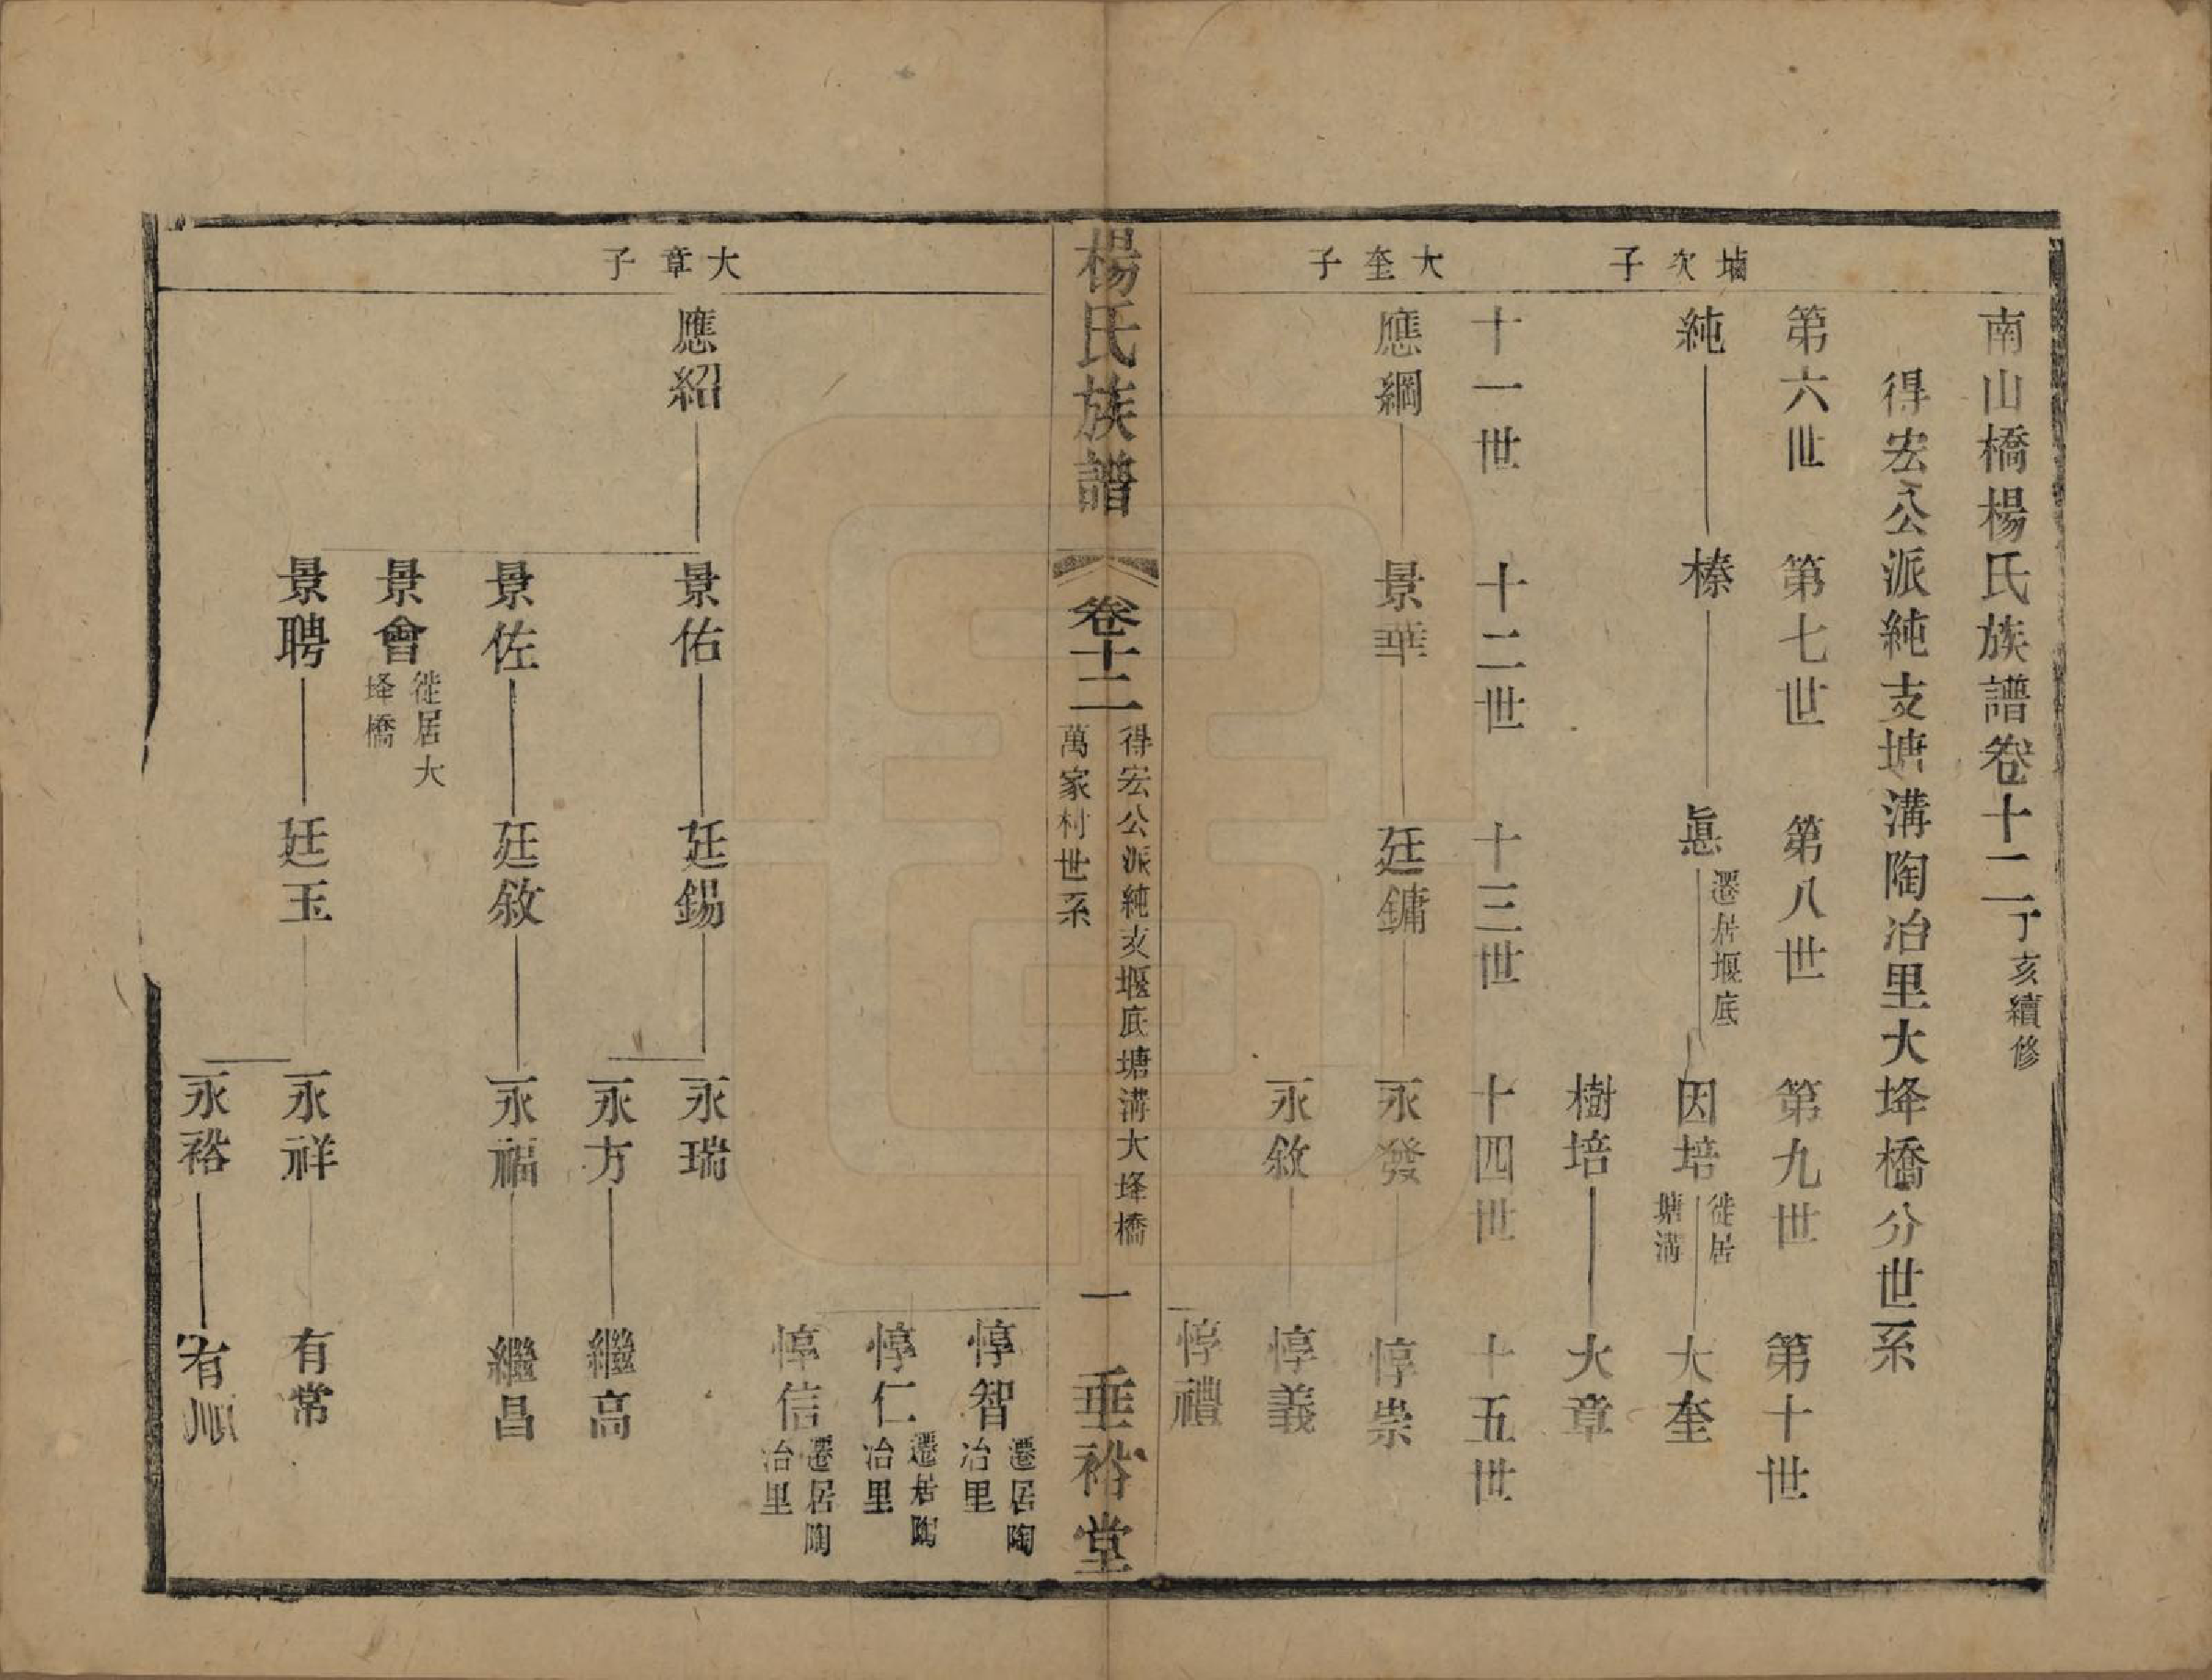 南山橋楊氏族譜卷十二丁亥續修
得宏公派純支塘溝陶冶里大夅橋分世系
次子
第六世 第七世 第八世 第九世 第十世
純 榛 眞遷居堰底 因培徙居塘溝 大奎
樹培 大章
大奎子
十一世 十二世 十三世 十四世 十五世
應綱 景華 廷鏞 永發 惇崇
永敘 惇義
惇禮
楊氏族譜 卷十二 得宏公派純支堰底塘溝大夅橋萬家村世系 一 垂裕堂
惇智遷居陶冶里
惇仁遷居陶冶里
惇信遷居陶冶里
大章子
應紹 景佑 廷錫 永瑞
永方 繼高
景佐 廷敘 永福 繼昌
景會徙居大夅橋
景聘 廷玉 永祥 有常
永裕 有